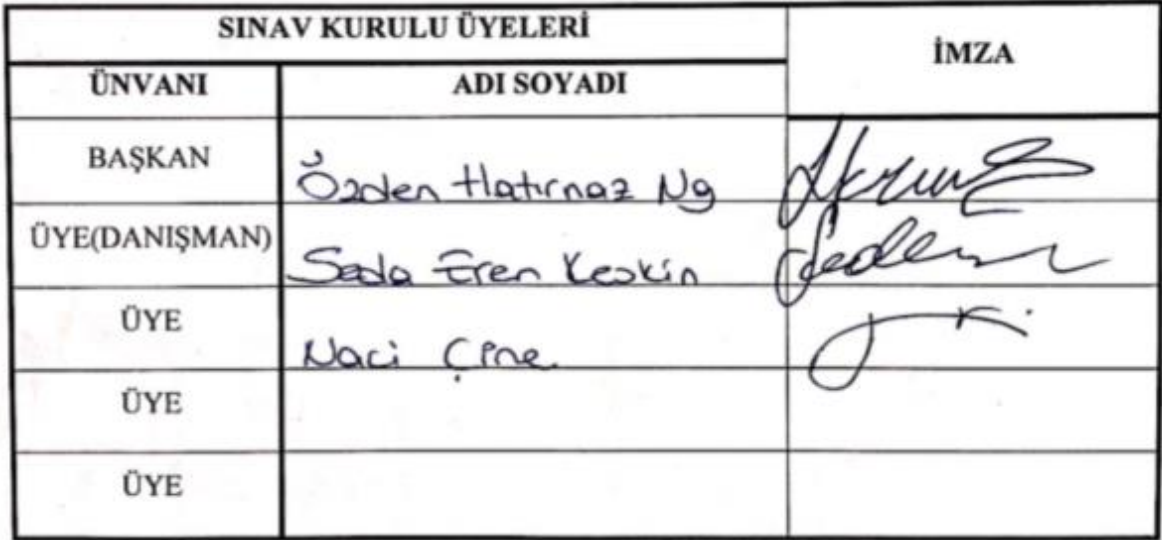 SINAV KURULU ÜYELERİ
İMZA
ÜNVANI ADI SOYADI
BAŞKAN Özden Hatırnaz Ng
ÜYE(DANIŞMAN) Seda Eren Keskin
ÜYE Naci Çine
ÜYE
ÜYE